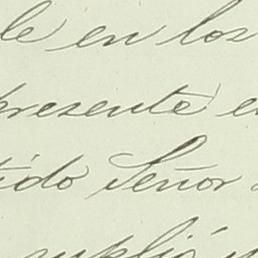 le en los
presente e
tido Señor
suplió